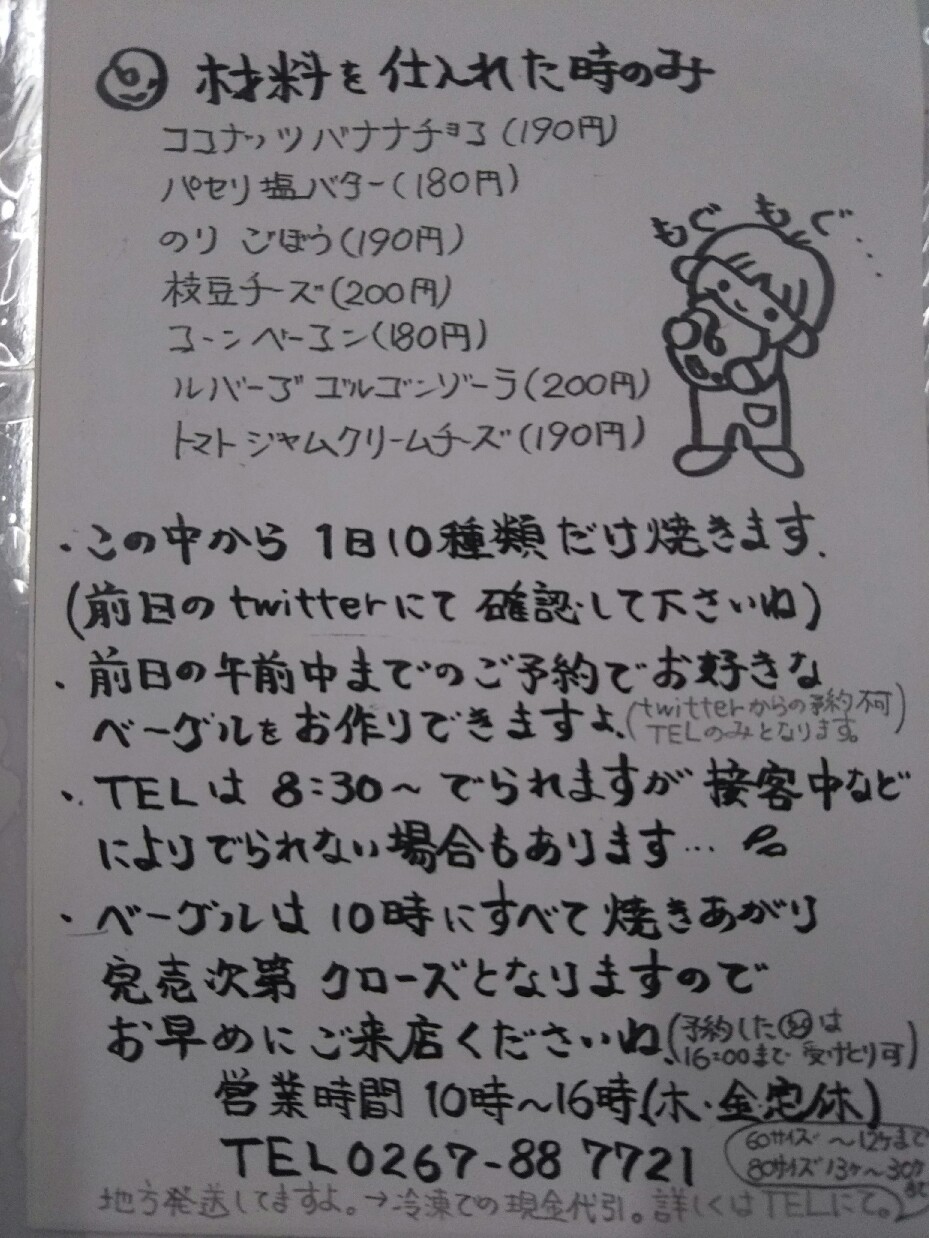 材料を仕入れた時のみ
ココナッツバナナチョコ(190円)
パセリ塩バター(180円)
のり ごぼう(190円)
枝豆チーズ(200円)
コーンベーコン(180円)
ルバーブ ゴルゴンゾーラ(200円)
トマトジャムクリームチーズ(190円)
もぐもぐ...
・この中から 1日10種類だけ焼きます.
(前日のtwitterにて確認して下さいね)
・前日の午前中までのご予約でお好きな
ベーグルをお作りできますよ。(twitterからの予約不可
TELのみとなります。)
・TELは 8:30~でられますが 接客中など
によりでられない場合もあります…
・ベーグルは10時にすべて焼きあがり
完売次第 クローズとなりますので
お早めにご来店くださいね。(予約した は
16:00まで 受けとり可)
営業時間 10時~16時(木・金定休)
TEL0267-88 7721
60サイズ ~12ケまで
80サイズ 13ケ~30ケまで
地方発送してますよ。→冷凍での現金代引。詳しくはTELにて。